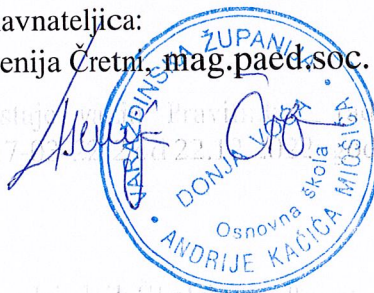 avnateljica:
enija Čretni, mag.paed.soc.
VARAŽDINSKA ŽUPANIJA
DONJA VOĆA
Osnovna škola
ANDRIJE KAČIĆA MIOŠIĆA